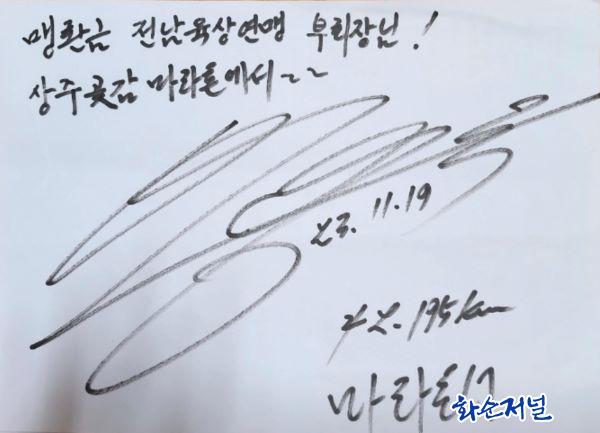 맹환금 전남육상연맹 부회장님!
상주곶감 마라톤에서~~
23. 11. 19
42.195km
마라톤
화순저널